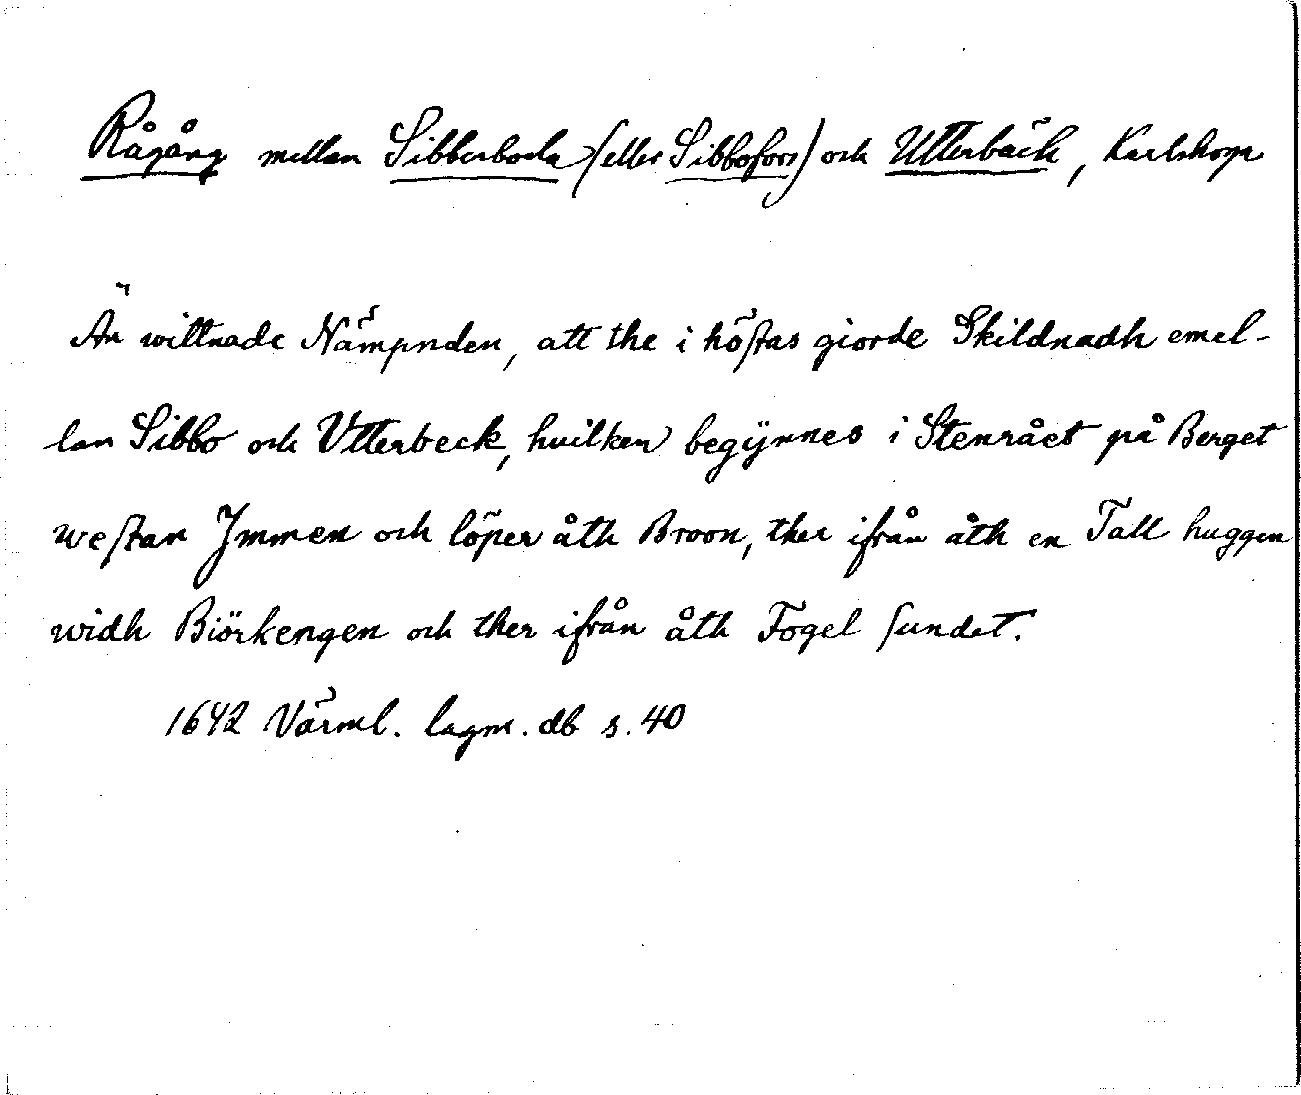 Rågång mellan Sibberboda (eller Sibbofors) och Utterbäck, Karlskoga
Än wittnade Nämpnden, att the i höstas giorde Skildnadh emel-
lan Sibbo och Utterbeck, huilken begÿnnes i Stenrået på Berget
westan Jmmen och löper åth Broon, ther ifrån åth en Tall huggen
widh Biörkengen och ther ifrån åth Fogel sundet.
1642 Värml. lagm. db s. 40